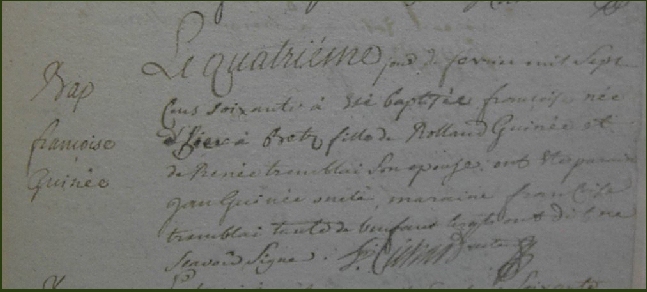 Bap
françoise
Guinée
Le quatriéme jour de fevrier mil Sept
Cens soixante à été baptisée françoise née
d'hier à Bretz fille de Rolland Guinée et
de Renée tremblai Son epouse. ont été parain
Jan Guinée maraine françoise
tremblai tante de l'enfant ont dit ne
Scavoir Signer.
Soixante